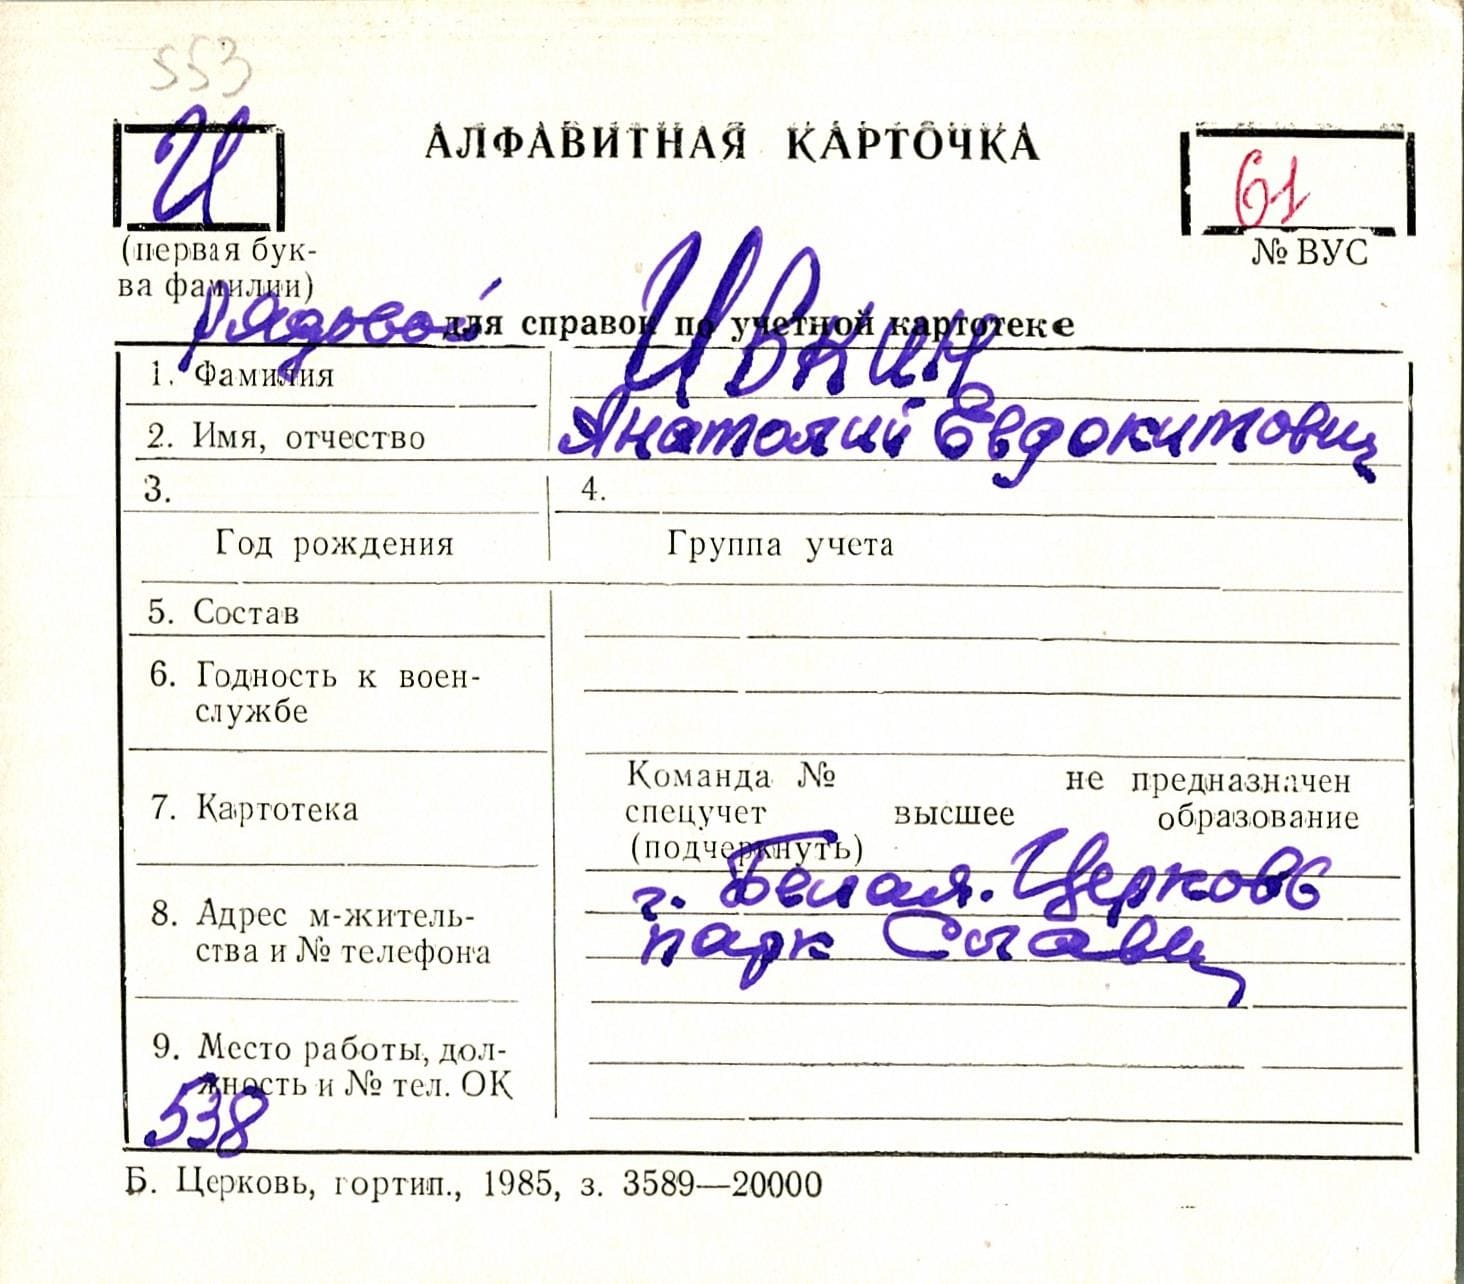 553
И
АЛФАВИТНАЯ КАРТОЧКА
61
(первая бук-
ва фамилии)
№ ВУС
рядовой
для справок по учетной картотеке
1. Фамилия Ивкин
2. Имя, отчество Анатолий Евдокимович
3. 4.
Год рождения Группа учета
5. Состав
6. Годность к воен-
службе
Команда № не предназначен
7. Картотека спецучет высшее образование
(подчеркнуть)
8. Адрес м-житель- г. Белая. Церковь
ства и № телефона парк Славы
9. Место работы, дол-
жность и № тел. ОК
538
Б. Церковь, гортип., 1985, з. 3589—20000